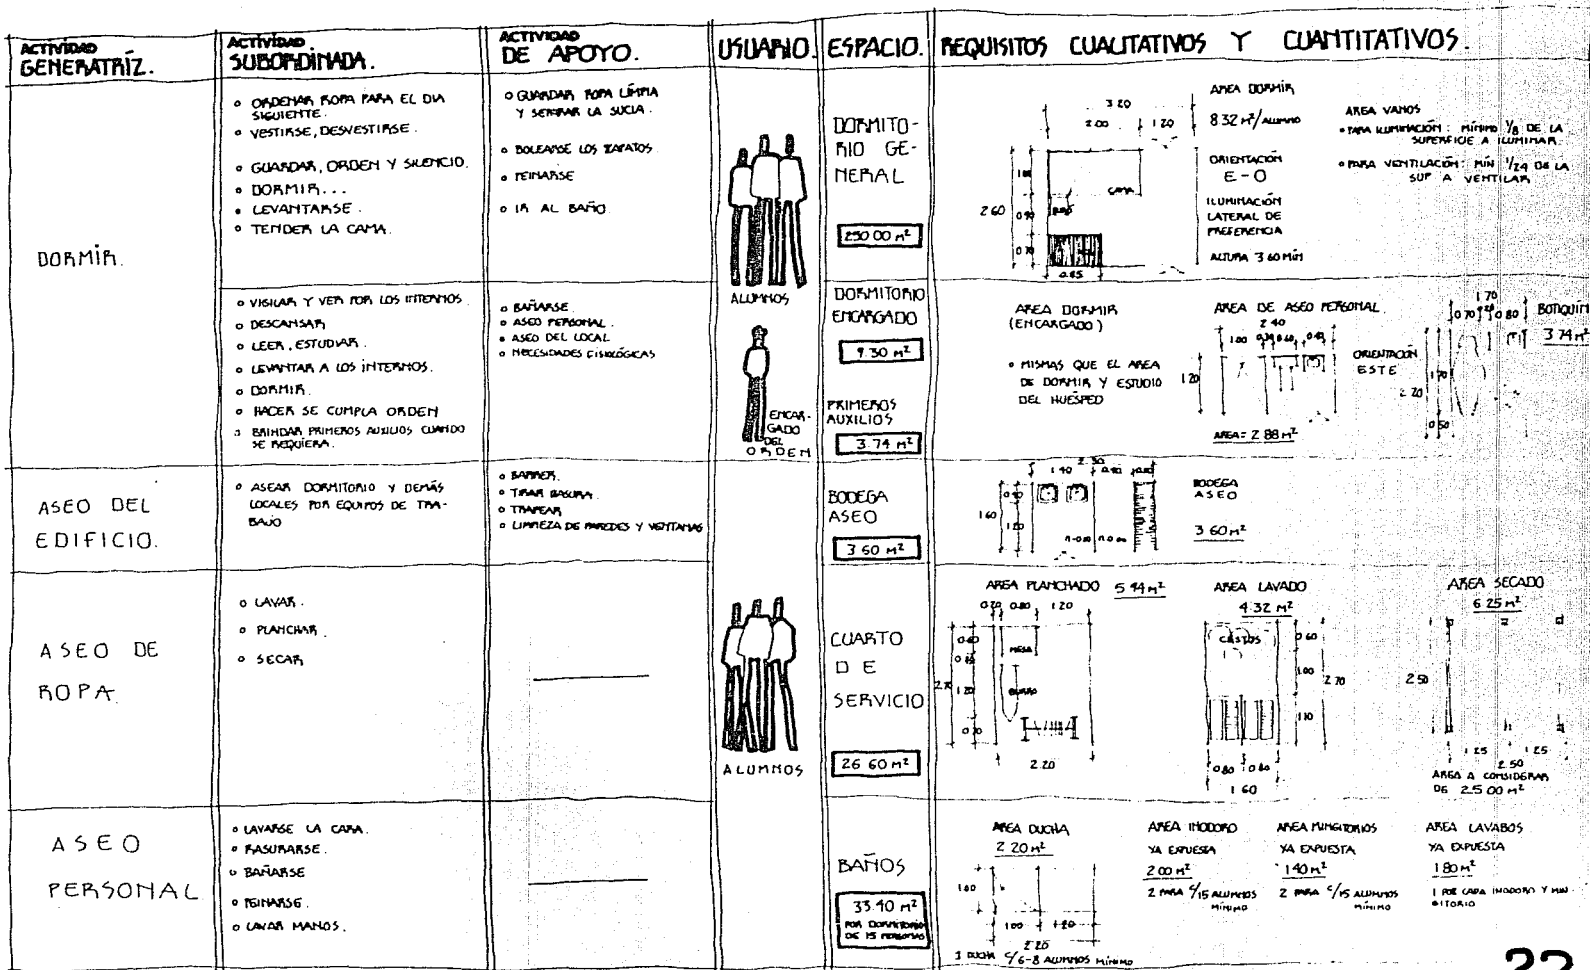 ACTIVIDAD
GENERATRÍZ.
ACTIVIDAD
SUBORDINADA.
ACTIVIDAD
DE APOYO.
USUARIO.
ESPACIO.
REQUISITOS CUALITATIVOS Y CUANTITATIVOS.
DORMIR.
ORDENAR ROPA PARA EL DIA
SIGUIENTE.
VESTIRSE, DESVESTIRSE.
GUARDAR, ORDEN Y SILENCIO.
DORMIR...
LEVANTARSE.
TENDER LA CAMA.
GUARDAR ROPA LIMPIA
Y SEPARAR LA SUCIA.
BOLEARSE LOS ZAPATOS
PEINARSE
IR AL BAÑO.
ALUMNOS
DORMITO-
RIO GE-
NERAL
250.00 M²
3.20
2.00 1.20
2.60
0.90
0.70
CAMA
0.85
AREA DORMIR
8.32 M²/ALUMNO
ORIENTACIÓN
E-O
ILUMINACIÓN
LATERAL DE
PREFERENCIA
ALTURA 3.60 MIN
AREA VANOS
PARA ILUMINACIÓN: MÍNIMO 1/8 DE LA
SUPERFICIE A ILUMINAR.
PARA VENTILACIÓN: MÍN 1/24 DE LA
SUP A VENTILAR
VIGILAR Y VER POR LOS INTERNOS.
DESCANSAR
LEER, ESTUDIAR.
LEVANTAR A LOS INTERNOS.
DORMIR.
HACER SE CUMPLA ORDEN
BRINDAR PRIMEROS AUXILIOS CUANDO
SE REQUIERA.
BAÑARSE.
ASEO PERSONAL.
ASEO DEL LOCAL
NECESIDADES FISIOLÓGICAS
ENCAR-
GADO
DEL
ORDEN
DORMITORIO
ENCARGADO
9.30 M²
PRIMEROS
AUXILIOS
3.74 M²
AREA DORMIR
(ENCARGADO)
MISMAS QUE EL AREA
DE DORMIR Y ESTUDIO
DEL HUÉSPED
AREA DE ASEO PERSONAL
2.40
1.00
1.20
AREA= 2.88 M²
ORIENTACIÓN
ESTE
1.70
0.70 0.80
2.20
1.70
0.50
BOTIQUÍN
3.74 M²
ASEO DEL
EDIFICIO.
ASEAR DORMITORIO Y DEMÁS
LOCALES POR EQUIPOS DE TRA-
BAJO
BARRER.
TIRAR BASURA.
TRAPEAR
LIMPIEZA DE PAREDES Y VENTANAS
BODEGA
ASEO
3.60 M²
1.40
1.60
1.20
BODEGA
ASEO
3.60 M²
ASEO DE
ROPA.
LAVAR.
PLANCHAR.
SECAR
ALUMNOS
CUARTO
DE
SERVICIO
26.60 M²
AREA PLANCHADO 5.94 M²
0.20 0.80 1.20
0.60
2.70
1.20
MESA
BURRO
2.20
AREA LAVADO
4.32 M²
CESTOS
0.60
1.00
2.70
1.10
0.80 0.80
1.60
AREA SECADO
6.25 M²
2.50
1.25 1.25
2.50
AREA A CONSIDERAR
DE 25.00 M²
ASEO
PERSONAL
LAVARSE LA CARA.
RASURARSE.
BAÑARSE
PEINARSE.
LAVAR MANOS.
BAÑOS
33.40 M²
POR DORMITORIO
DE 15 PERSONAS
AREA DUCHA
2.20 M²
1.00
1.00 1.20
2.20
1 DUCHA C/6-8 ALUMNOS MÍNIMO
AREA INODORO
YA EXPUESTA
2.00 M²
2 PARA C/15 ALUMNOS
MÍNIMO
AREA MINGITORIOS
YA EXPUESTA
1.40 M²
2 PARA C/15 ALUMNOS
MÍNIMO
AREA LAVABOS
YA EXPUESTA
1.80 M²
1 POR CADA INODORO Y MIN-
GITORIO